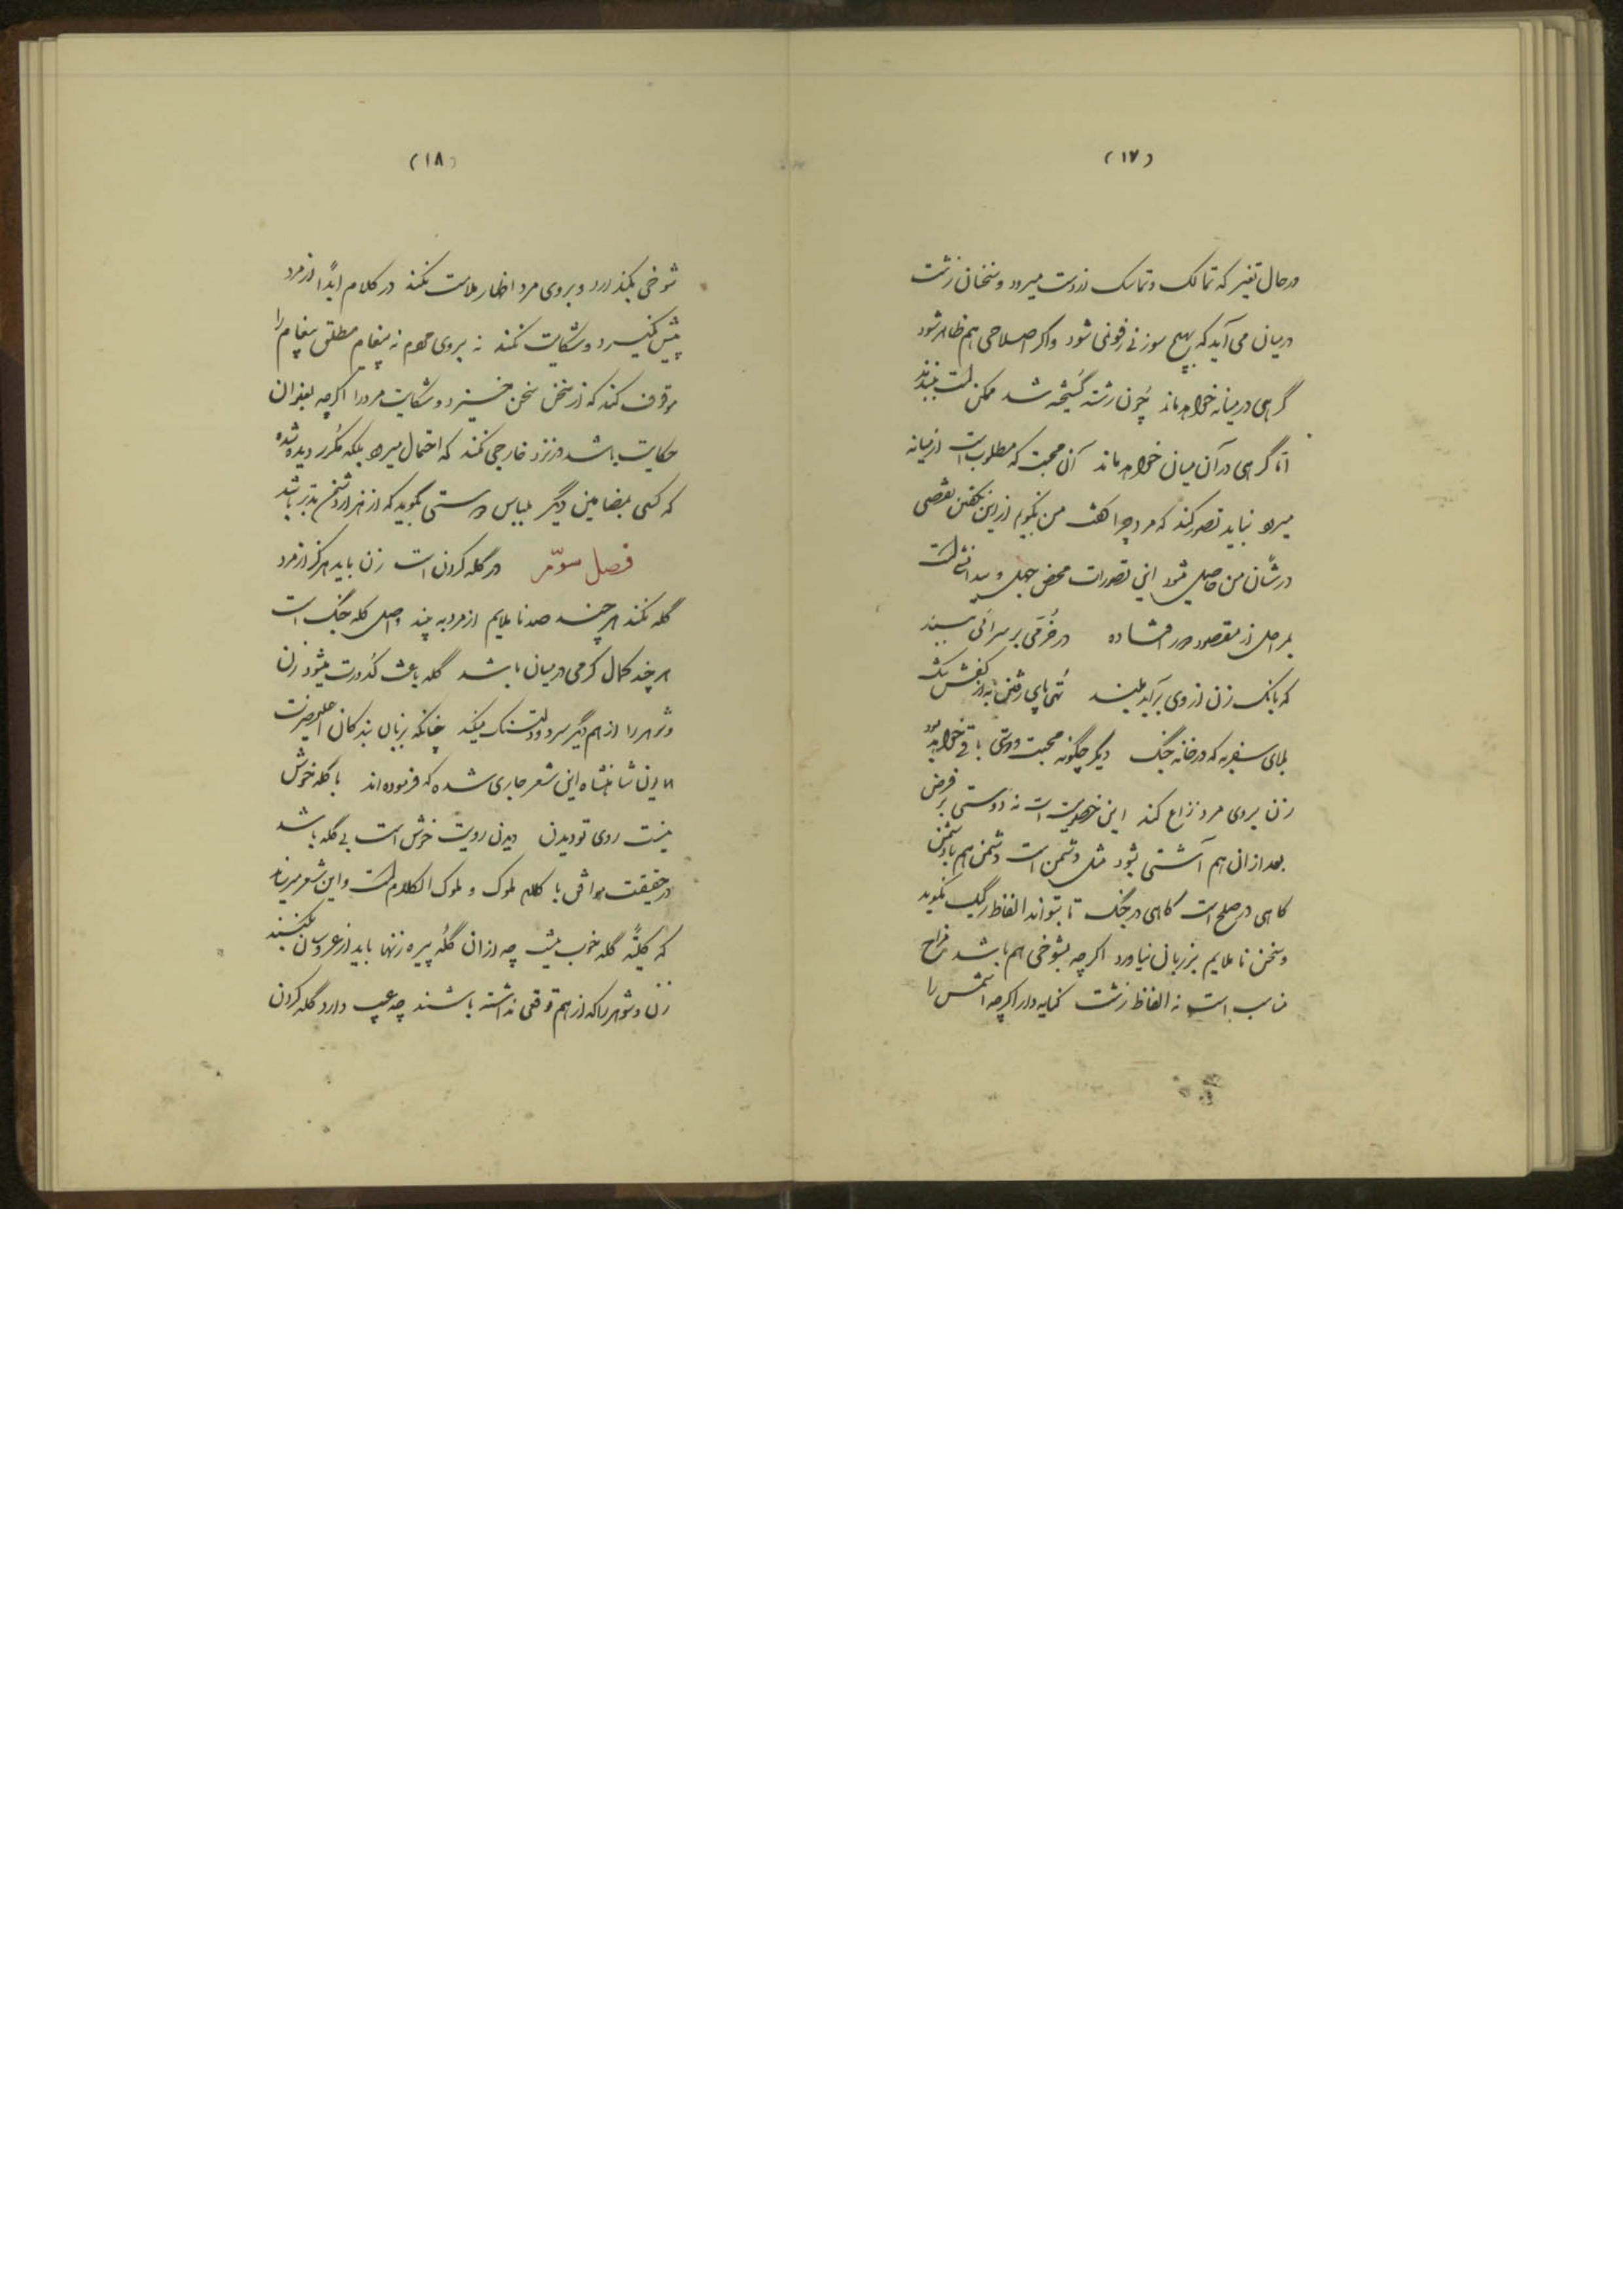 (۱۷)
در حال تغیر که تمالک و تماسک از دست میرود و سخنان زشت
درمیان می آید که بهیچ سوزنی رفو نمی شود و اگر اصلاحی هم ظاهر شود
گرهی در میانه خواهد ماند چون رشته گسیخته شد ممکن است ببندند
اما گرهی در آن میان خواهد ماند آن محبت که مطلوب است از میانه
میرود نباید تصور کند که مرد چرا گفت من نگویم ازین نگفتن نقصی
در شأن من حاصل شود این تصورات محض جهل و بیدانشی است
بمراحل از مقصود دور افتاده در خرمی بر سرائی ببند
که بانگ زن از وی برآید بلند تهی پای رفتن به از کفش تنگ
بلای سفر به که در خانه جنگ دیگر چگونه محبت و دوستی باقی خواهد بود
زن بروی مرد نزاع کند این خصومت است نه دوستی بر فرض
بعد از ان هم آشتی بشود مثل دشمن است دشمن هم با دشمن
گاهی در صلح است گاهی در جنگ تا بتواند الفاظ رکیک نگوید
و سخن ناملایم بزبان نیاورد اگرچه بشوخی هم باشد مزاح
مناسب است نه الفاظ زشت کنایه دار اگرچه اسمش را
(۱۸)
شوخی بگذارد و بروی مرد اظهار ملامت نکند در کلام ابداً از مرد
پیش نگیرد و شکایت نکند نه بروی هم نه پیغام مطلق پیغام را
موقوف کند که از سخن سخن خیزد و شکایت مرد را اگرچه بعنوان
حکایت باشد در نزد خارجی نکند که احتمال میرود بلکه مکرر دیده شده
که کسی بمضامین دیگر بلباس دوستی بگوید که از هزار دشمن بدتر باشد
فصل سوّم در گله کردن است زن باید هرگز از مرد
گله نکند هر چند صد ناملایم از مرد به بیند اصل گله جنگ است
هر چند کمال گرمی در میان باشد گله باعث کدورت میشود زن
و شوهر را از هم دیگر سرد و دلتنگ میکند چنانکه بزبان بندگان اعلیحضرت
همایون شاهنشاه این شعر جاری شده که فرموده اند با گله خوش
نیست روی تو دیدن دیدن رویت خوش است بی گله باشد
در حقیقت موافق با کلام ملوک و ملوک الکلام است و این شعر میرساند
که کلیّه گله خوب نیست چه از ان گله پیره زنها باید از عروسان بکنند
زن و شوهر را که از هم توقعی نداشته باشند چه عیب دارد گله کردن